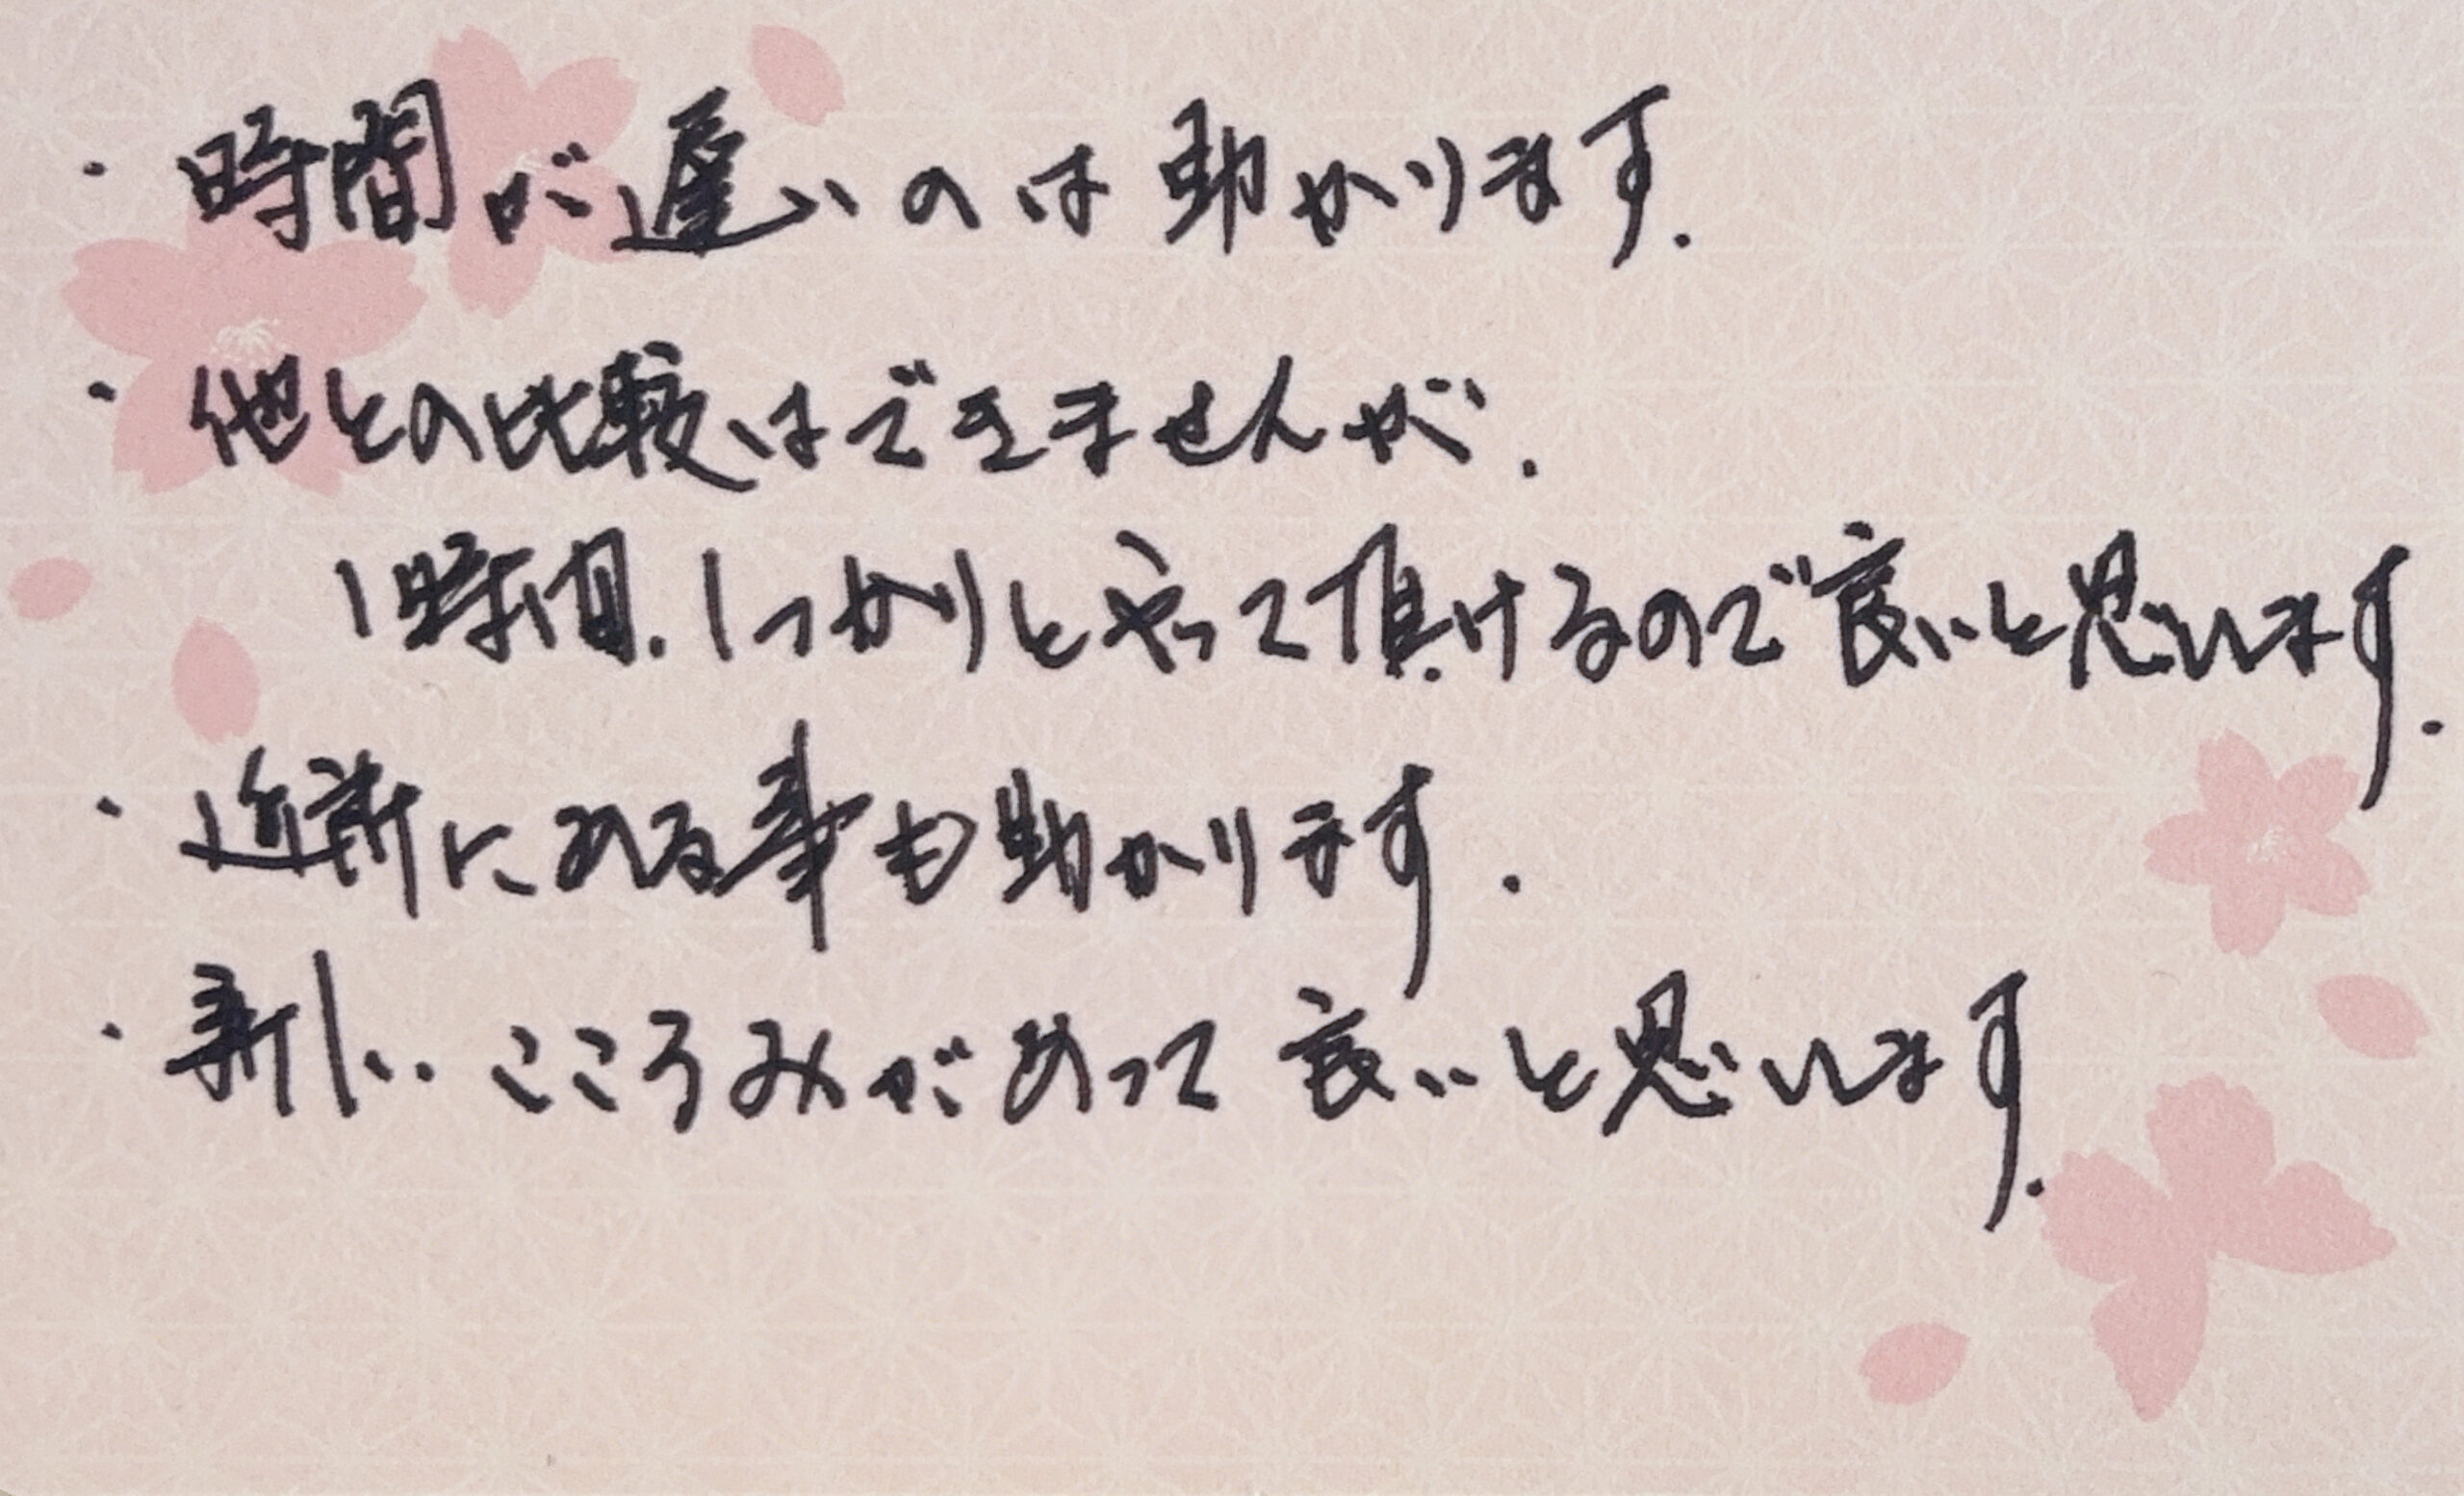 ・時間が遅いのは助かります.
・他との比較はできませんが.
1時間.しっかりとやって頂けるので良いと思います.
・近所にある事も助かります.
・新しい こころみがあって 良いと思います.